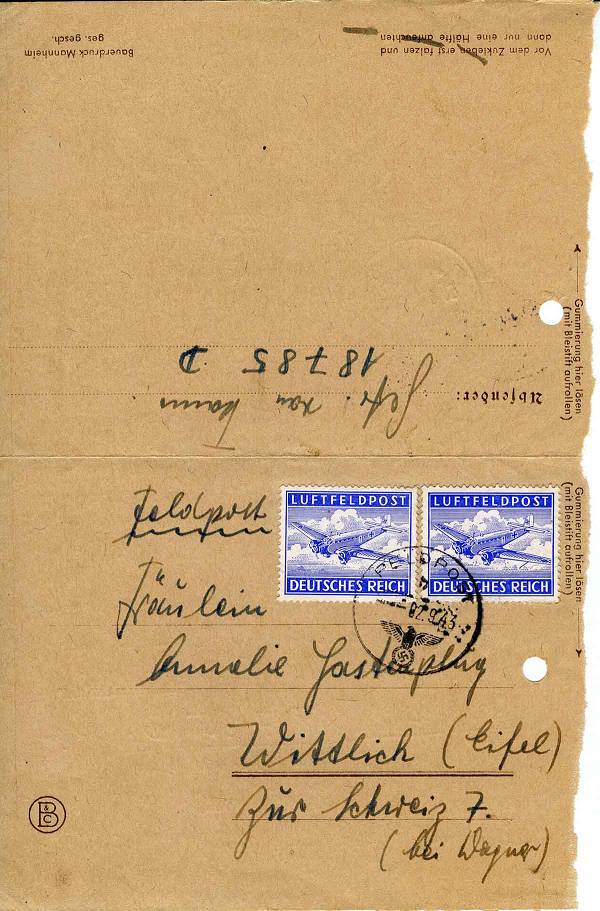 Bauerdruck Mannheim
ges. gesch.
Vor dem Zukleben erst falzen und
dann nur eine Hälfte anfeuchten
Gummierung hier lösen
(mit Bleistift aufrollen)
Absender:
Gefr.
18785 D
Feldpost
LUFTFELDPOST
DEUTSCHES REICH
LUFTFELDPOST
DEUTSCHES REICH
FELDPOST
Gummierung hier lösen
(mit Bleistift aufrollen)
Fräulein
Annelie
Wittlich (Eifel)
Zur Schweiz 7.
(bei Wagner)
B&C